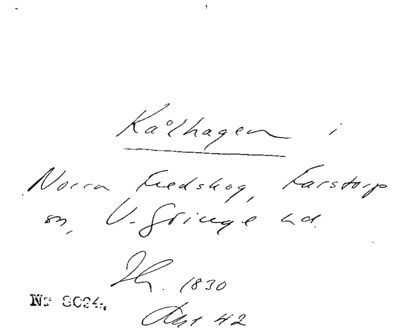 Kålhagen i
Norra Fredskog, Farstorp
sn, V. Göinge hd.
1830
Nr 8084.
Akt 42